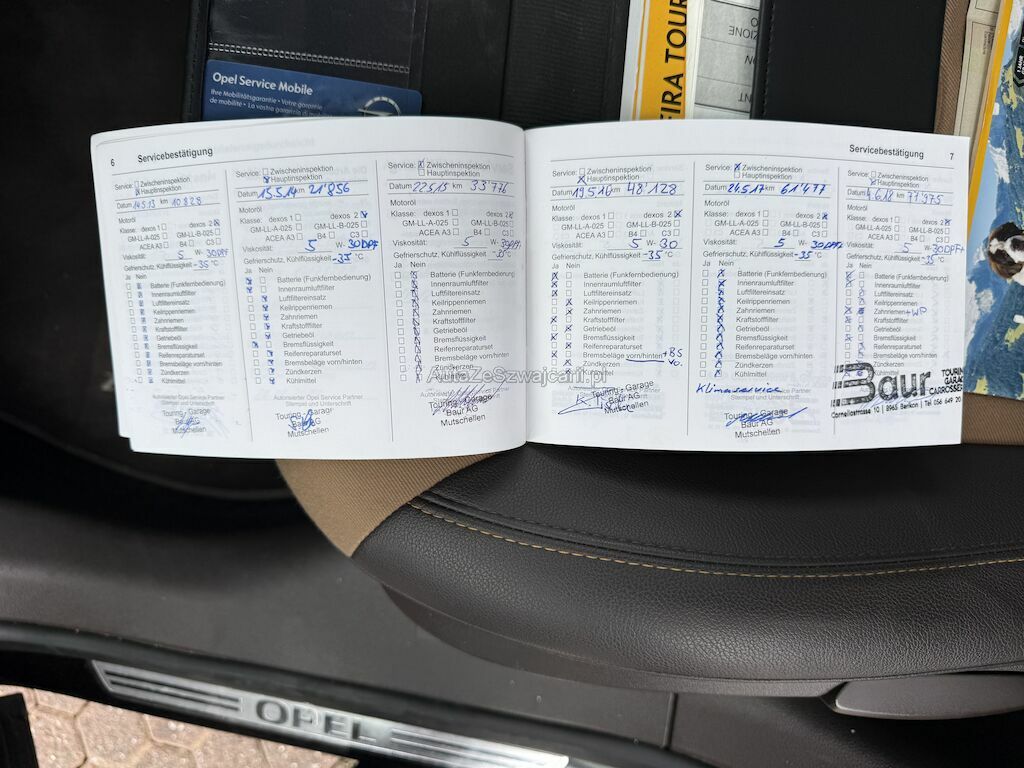 Opel Service Mobile
Ihre Mobilitätsgarantie • Votre garantie
de mobilité • La vostra garanzia di
FIRA TOUR
6 Servicebestätigung
Service: Zwischeninspektion
Hauptinspektion
Datum 14.5.13 km 10828
Motoröl
Klasse: dexos 1 dexos 2
GM-LL-A-025 GM-LL-B-025
ACEA A3 B4 C3
Viskosität: 5 W- 30DPF
Gefrierschutz, Kühlflüssigkeit -35 °C
Ja Nein
Batterie (Funkfernbedienung)
Innenraumfilter
Luftfiltereinsatz
Keilrippenriemen
Zahnriemen
Kraftstofffilter
Getriebeöl
Bremsflüssigkeit
Reifenreparaturset
Bremsbeläge vorn/hinten
Zündkerzen
Kühlmittel
Autorisierter Opel Service Partner
Stempel und Unterschrift
Touring - Garage
Baur AG
Mutschellen
Service: Zwischeninspektion
Hauptinspektion
Datum 15.5.14 km 21'856
Motoröl
Klasse: dexos 1 dexos 2
GM-LL-A-025 GM-LL-B-025
ACEA A3 B4 C3
Viskosität: 5 W- 30DPF
Gefrierschutz, Kühlflüssigkeit -35 °C
Ja Nein
Batterie (Funkfernbedienung)
Innenraumfilter
Luftfiltereinsatz
Keilrippenriemen
Zahnriemen
Kraftstofffilter
Getriebeöl
Bremsflüssigkeit
Reifenreparaturset
Bremsbeläge vorn/hinten
Zündkerzen
Kühlmittel
Autorisierter Opel Service Partner
Stempel und Unterschrift
Touring - Garage
Baur AG
Mutschellen
Service: Zwischeninspektion
Hauptinspektion
Datum 22.5.15 km 33'776
Motoröl
Klasse: dexos 1 dexos 2
GM-LL-A-025 GM-LL-B-025
ACEA A3 B4 C3
Viskosität: 5 W-
Gefrierschutz, Kühlflüssigkeit -35 °C
Ja Nein
Batterie (Funkfernbedienung)
Innenraumfilter
Luftfiltereinsatz
Keilrippenriemen
Zahnriemen
Kraftstofffilter
Getriebeöl
Bremsflüssigkeit
Reifenreparaturset
Bremsbeläge vorn/hinten
Zündkerzen
Kühlmittel
Touring - Garage
Baur AG
Mutschellen
Servicebestätigung 7
Service: Zwischeninspektion
Hauptinspektion
Datum 19.5.16 km 48'128
Motoröl
Klasse: dexos 1 dexos 2
GM-LL-A-025 GM-LL-B-025
ACEA A3 B4 C3
Viskosität: 5 W- 30
Gefrierschutz, Kühlflüssigkeit -35 °C
Ja Nein
Batterie (Funkfernbedienung)
Innenraumfilter
Luftfiltereinsatz
Keilrippenriemen
Zahnriemen
Kraftstofffilter
Getriebeöl
Bremsflüssigkeit
Reifenreparaturset
Bremsbeläge vorn/hinten
Zündkerzen
Touring - Garage
Baur AG
Mutschellen
Service: Zwischeninspektion
Hauptinspektion
Datum 24.5.17 km 61'477
Motoröl
Klasse: dexos 1 dexos 2
GM-LL-A-025 GM-LL-B-025
ACEA A3 B4 C3
Viskosität: 5 W- 30DPF
Gefrierschutz, Kühlflüssigkeit -35 °C
Ja Nein
Batterie (Funkfernbedienung)
Innenraumfilter
Luftfiltereinsatz
Keilrippenriemen
Zahnriemen
Kraftstofffilter
Getriebeöl
Bremsflüssigkeit
Reifenreparaturset
Bremsbeläge vorn/hinten
Zündkerzen
Kühlmittel
Klimaservice
Touring - Garage
Baur AG
Mutschellen
Service: Zwischeninspektion
Hauptinspektion
Datum 4.6.18 km 71'975
Motoröl
Klasse: dexos 1 dexos 2
GM-LL-A-025 GM-LL-B-025
ACEA A3 B4 C3
Viskosität: 5 W- 30DPF
Gefrierschutz, Kühlflüssigkeit -35 °C
Ja Nein
Batterie (Funkfernbedienung)
Innenraumfilter
Luftfiltereinsatz
Keilrippenriemen
Zahnriemen +WP
Kraftstofffilter
Getriebeöl
Bremsflüssigkeit
Reifenreparaturset
Bremsbeläge vorn/hinten
Zündkerzen
Kühlmittel
Baur
TOURING
GARAGE
CARROSSERIE
Corneliastrasse 10 | 8965 Berikon | Tel. 056 649 20
AutaZeSzwajcarii.pl
OPEL